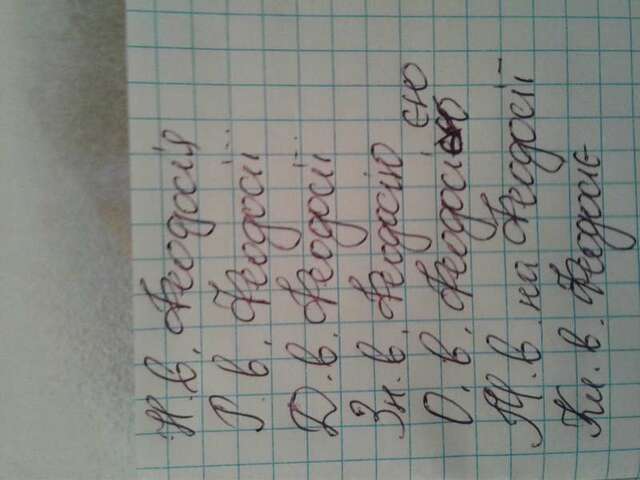 Н.в. Феодосія
Р.в. Феодосії
Д.в. Феодосії
Зн.в. Феодосію
О.в. Феодосією
М.в. на Феодосії
Кл.в. Феодосіє